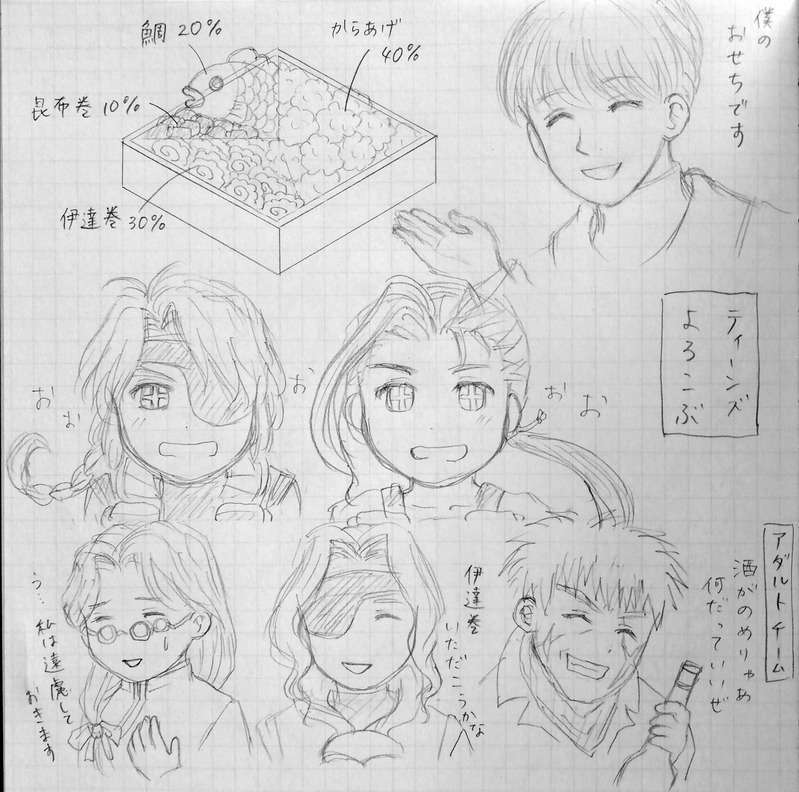 僕の
おせちです
鯛 20%
からあげ
40%
昆布巻 10%
伊達巻 30%
ティーンズ
よろこぶ
おお
お
おお
アダルトチーム
酒がのめりゃあ
何だっていいぜ
伊達巻
いただこうかな
う…私は遠慮して
おきます